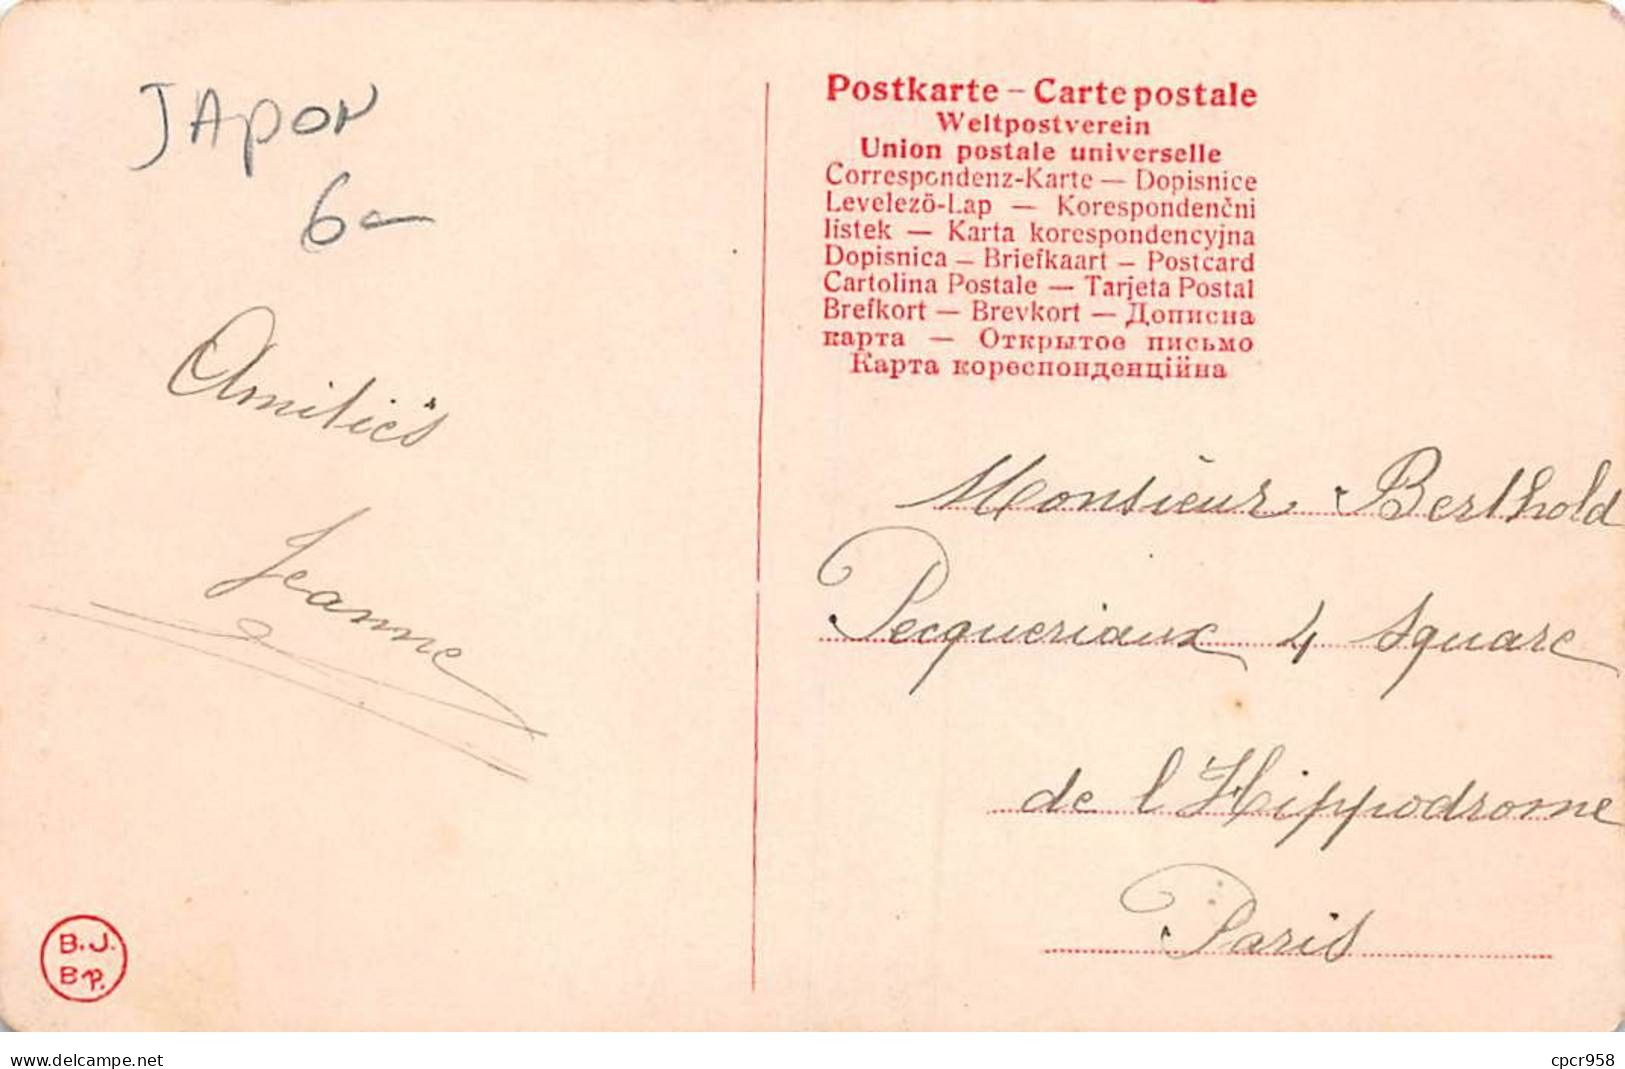 JAPON
6-
Amitiés
Jeanne
B.J.
B P.
Postkarte – Carte postale
Weltpostverein
Union postale universelle
Correspondenz-Karte — Dopisnice
Levelezö-Lap — Korespondenčni
listek — Karta korespondencyjna
Dopisnica — Briefkaart — Postcard
Cartolina Postale — Tarjeta Postal
Brefkort — Brevkort — Дописна
карта — Открытое письмо
Карта кореспонденційна
Monsieur Berthold
Pecqueriaux 4 Square
de l'Hippodrome
Paris
www.delcampe.net
cpcr958